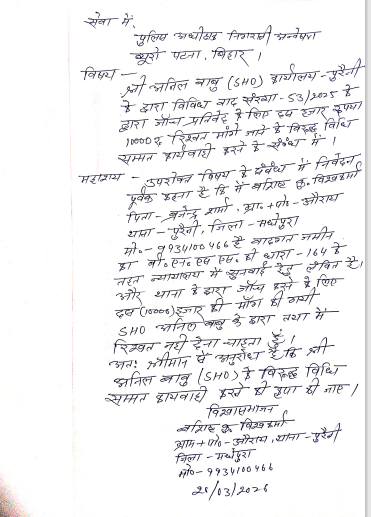 सेवा में,
पुलिस अधीक्षक निगरानी अन्वेषण
ब्यूरो पटना, बिहार ।
विषय —
श्री अनिल बाबु (SHO) कार्यालय - पुरैनी
के द्वारा विविध वाद संख्या - 53/2025 के
द्वारा जाँच प्रतिवेदन के लिए दस हजार रूपया
10000 रू रिश्वत मांगे जाने के विरूद्ध विधि
सम्मत कार्यवाही करने के संबंध में ।
महाशय — उपरोक्त विषय के संबंध में निवेदन
पूर्वक कहना है कि मैं कु. विश्वकर्मा
पिता - शर्मा, ग्रा.+पो.- औराय
थाना - पुरैनी, जिला - मधेपुरा
मो.- 9934100466 है वादगत जमीन
का बी. एन. एस एस. की धारा - 164 के
तहत न्यायालय में सुनवाई हेतु लंबित है।
और थाना के द्वारा जाँच करने के लिए
दस (10000) हजार की माँग की गयी
SHO अनिल बाबु के द्वारा तथा मैं
रिश्वत नहीं देना चाहता हूँ ।
अतः श्रीमान से अनुरोध है कि श्री
अनिल बाबु (SHO) के विरूद्ध विधि
सम्मत कार्यवाही करने की कृपा की जाए ।
विश्वासभाजन
कु विश्वकर्मा
ग्राम + पो.- औराय, थाना - पुरैनी
जिला - मधेपुरा
मो.- 9934100466
/03/2026